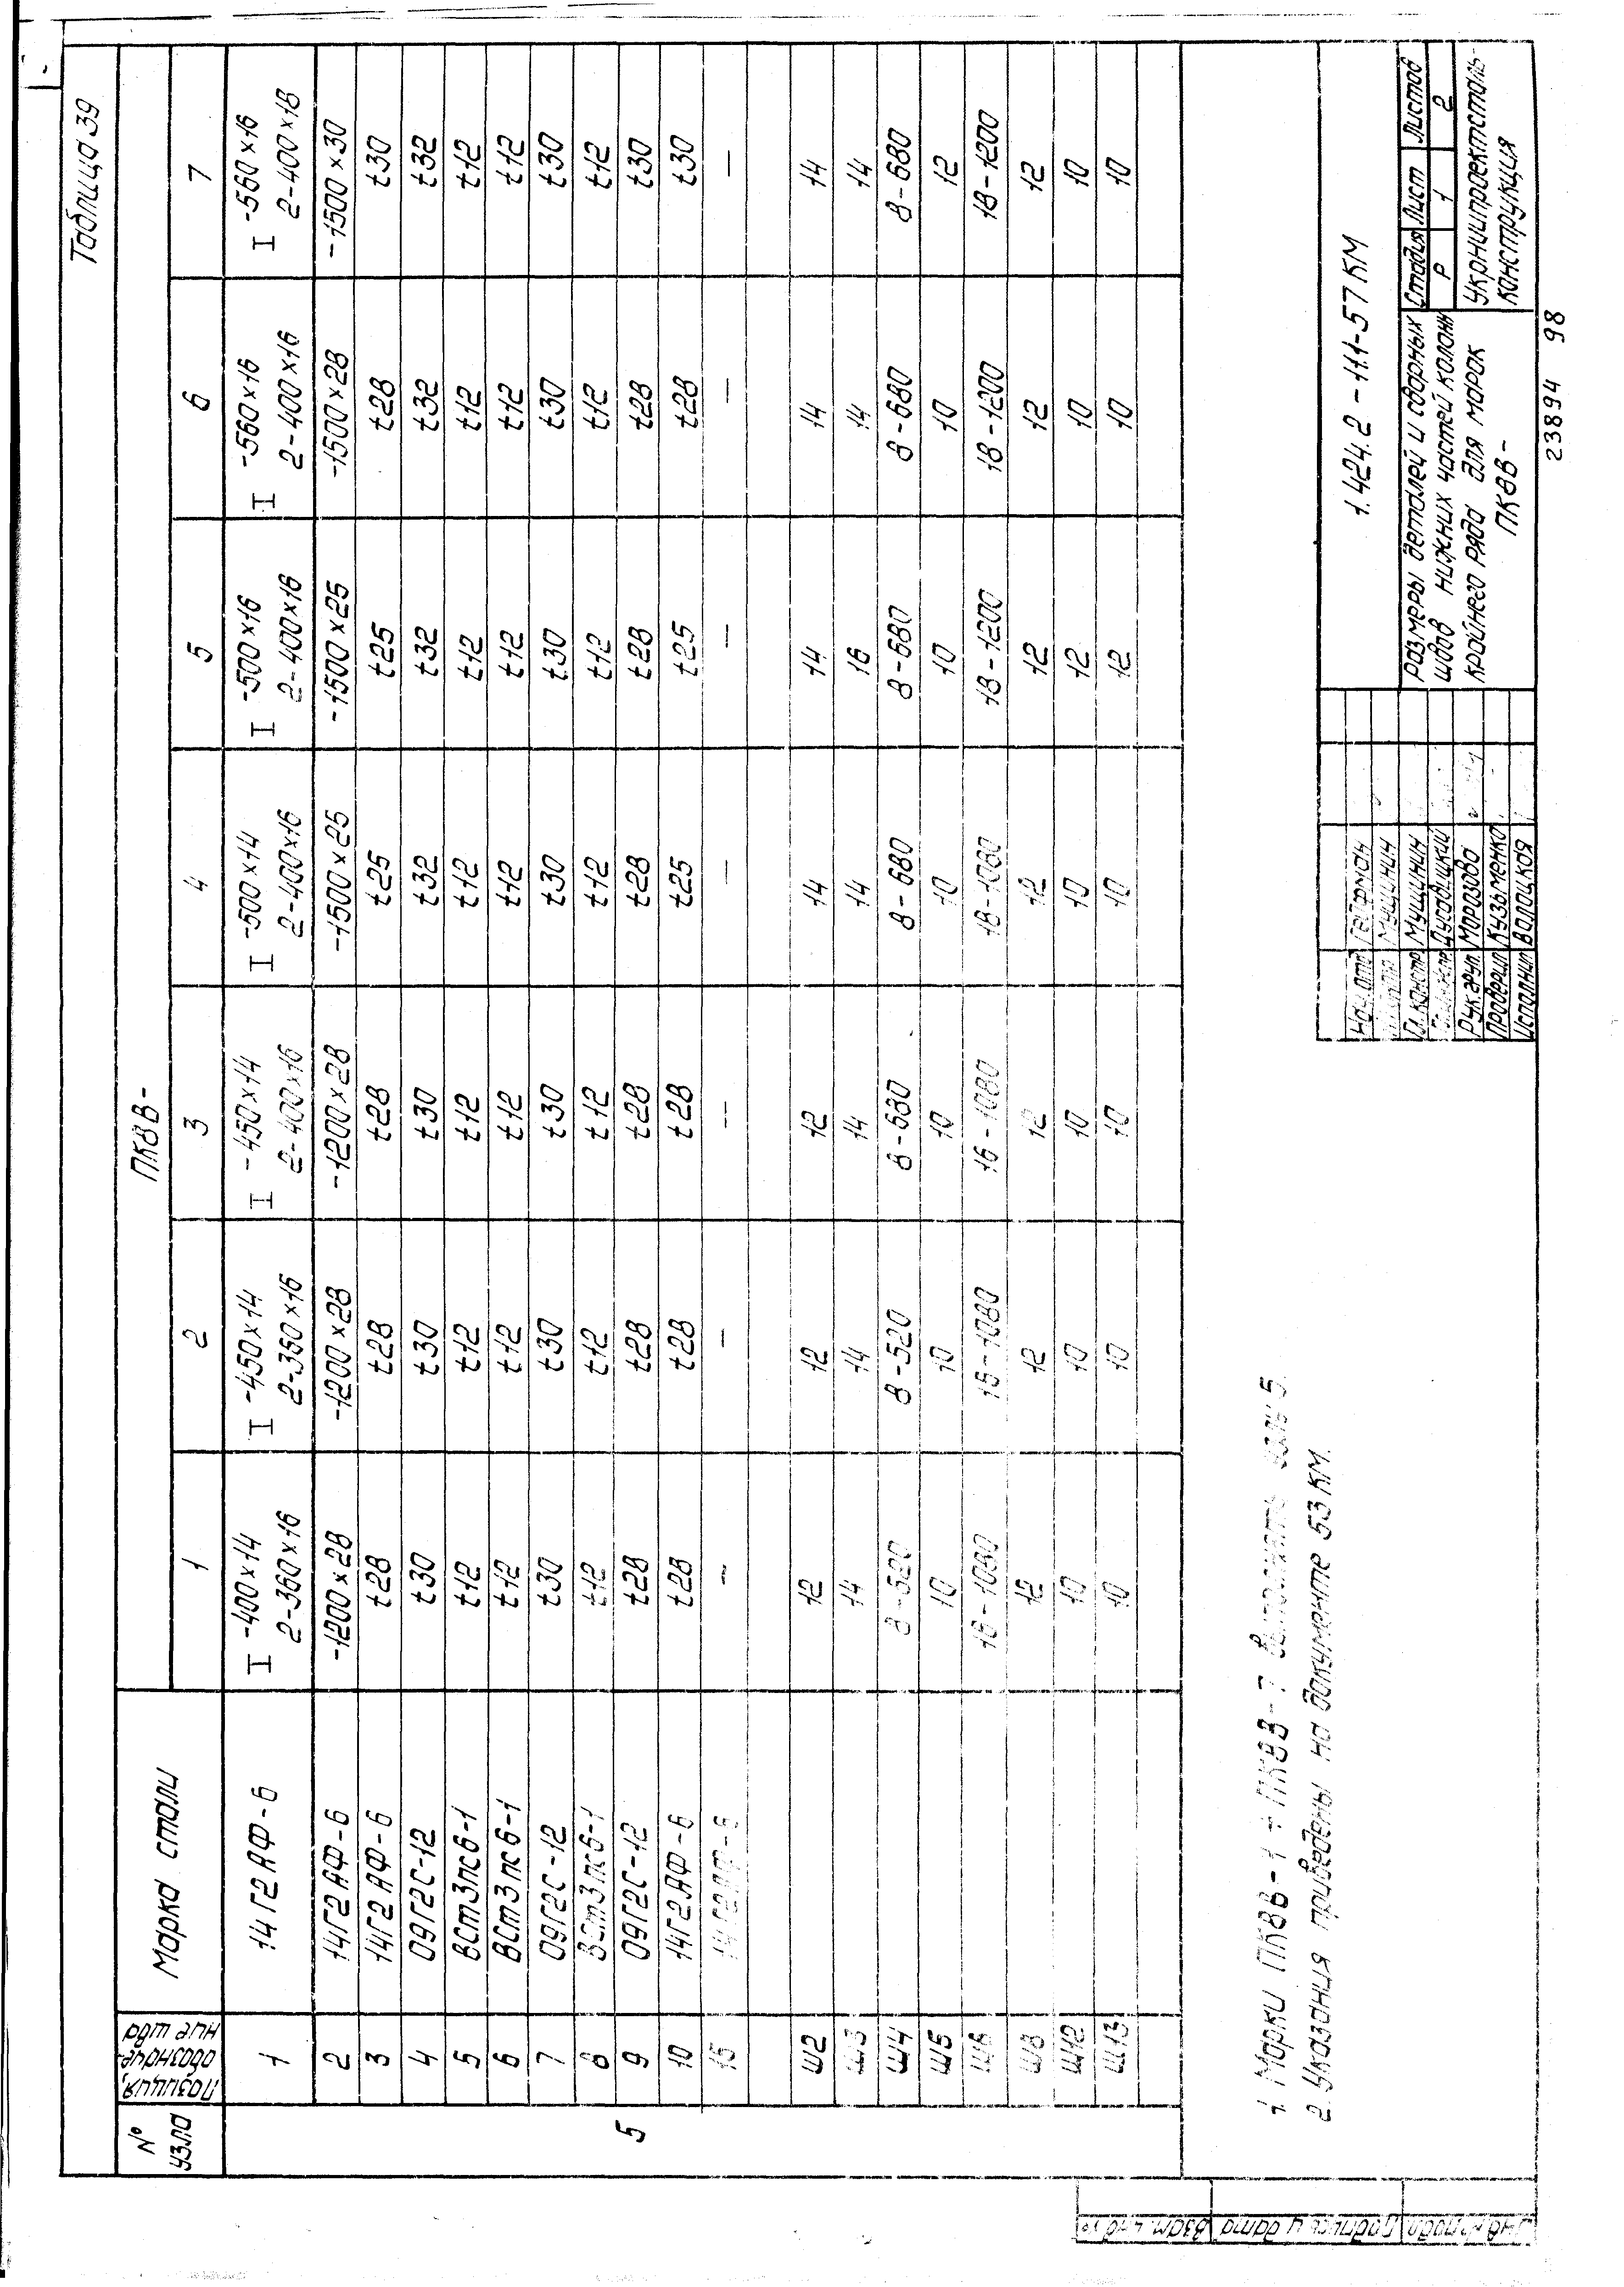 Таблица 39
№ узла | Позиция, обозначение шва | Марка стали | ПКВВ-
1 | 2 | 3 | 4 | 5 | 6 | 7
5
1 | 14Г2АФ-6 | I -400×14 2-360×16 | I -450×14 2-360×16 | I -450×14 2-400×16 | I -500×14 2-400×16 | I -500×16 2-400×16 | I -560×16 2-400×16 | I -560×16 2-400×18
2 | 14Г2АФ-6 | -1200×28 | -1200×28 | -1200×28 | -1500×25 | -1500×25 | -1500×28 | -1500×30
3 | 14Г2АФ-6 | t28 | t28 | t28 | t25 | t25 | t28 | t30
4 | 09Г2С-12 | t30 | t30 | t30 | t32 | t32 | t32 | t32
5 | ВСт3пс6-1 | t12 | t12 | t12 | t12 | t12 | t12 | t12
6 | ВСт3пс6-1 | t12 | t12 | t12 | t12 | t12 | t12 | t12
7 | 09Г2С-12 | t30 | t30 | t30 | t30 | t30 | t30 | t30
8 | ВСт3пс6-1 | t12 | t12 | t12 | t12 | t12 | t12 | t12
9 | 09Г2С-12 | t28 | t28 | t28 | t28 | t28 | t28 | t30
10 | 14Г2АФ-6 | t28 | t28 | t28 | t25 | t25 | t28 | t30
15 | 14Г2АФ-6 | — | — | — | — | — | — | —
Ш2 | 12 | 12 | 12 | 14 | 14 | 14 | 14
Ш3 | 14 | 14 | 14 | 14 | 16 | 14 | 14
Ш4 | 8-520 | 8-520 | 8-680 | 8-680 | 8-680 | 8-680 | 8-680
Ш5 | 10 | 10 | 10 | 10 | 10 | 10 | 12
Ш6 | 16-1080 | 16-1080 | 16-1080 | 18-1080 | 18-1200 | 18-1200 | 18-1200
Ш8 | 12 | 12 | 12 | 12 | 12 | 12 | 12
Ш12 | 10 | 10 | 10 | 10 | 12 | 10 | 10
Ш13 | 10 | 10 | 10 | 10 | 12 | 10 | 10
1. Марки ПКВВ-1 ÷ ПКВВ-7 выполнять узлы 5.
2. Указания приведены на документе 53 КМ.
1.424.2-11.1-57 КМ
Нач.отд. Гейфман
Мущинин
Гл.констр. Мущинин
Рук.груп. Морозова
Проверил Кузьменко
Исполнил Волоцкая
Размеры деталей и сварных
швов нижних частей колонн
крайнего ряда для марок
ПКВВ-
Стадия Лист Листов
Р 1 2
Укрниипроектсталь-
конструкция
23894 98
Инв.№ подл. Подпись и дата Взам. инв.№